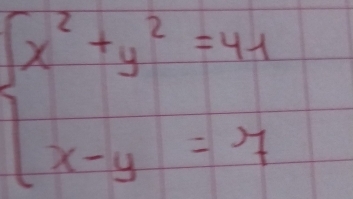 x² + y² = 41
x - y = 7